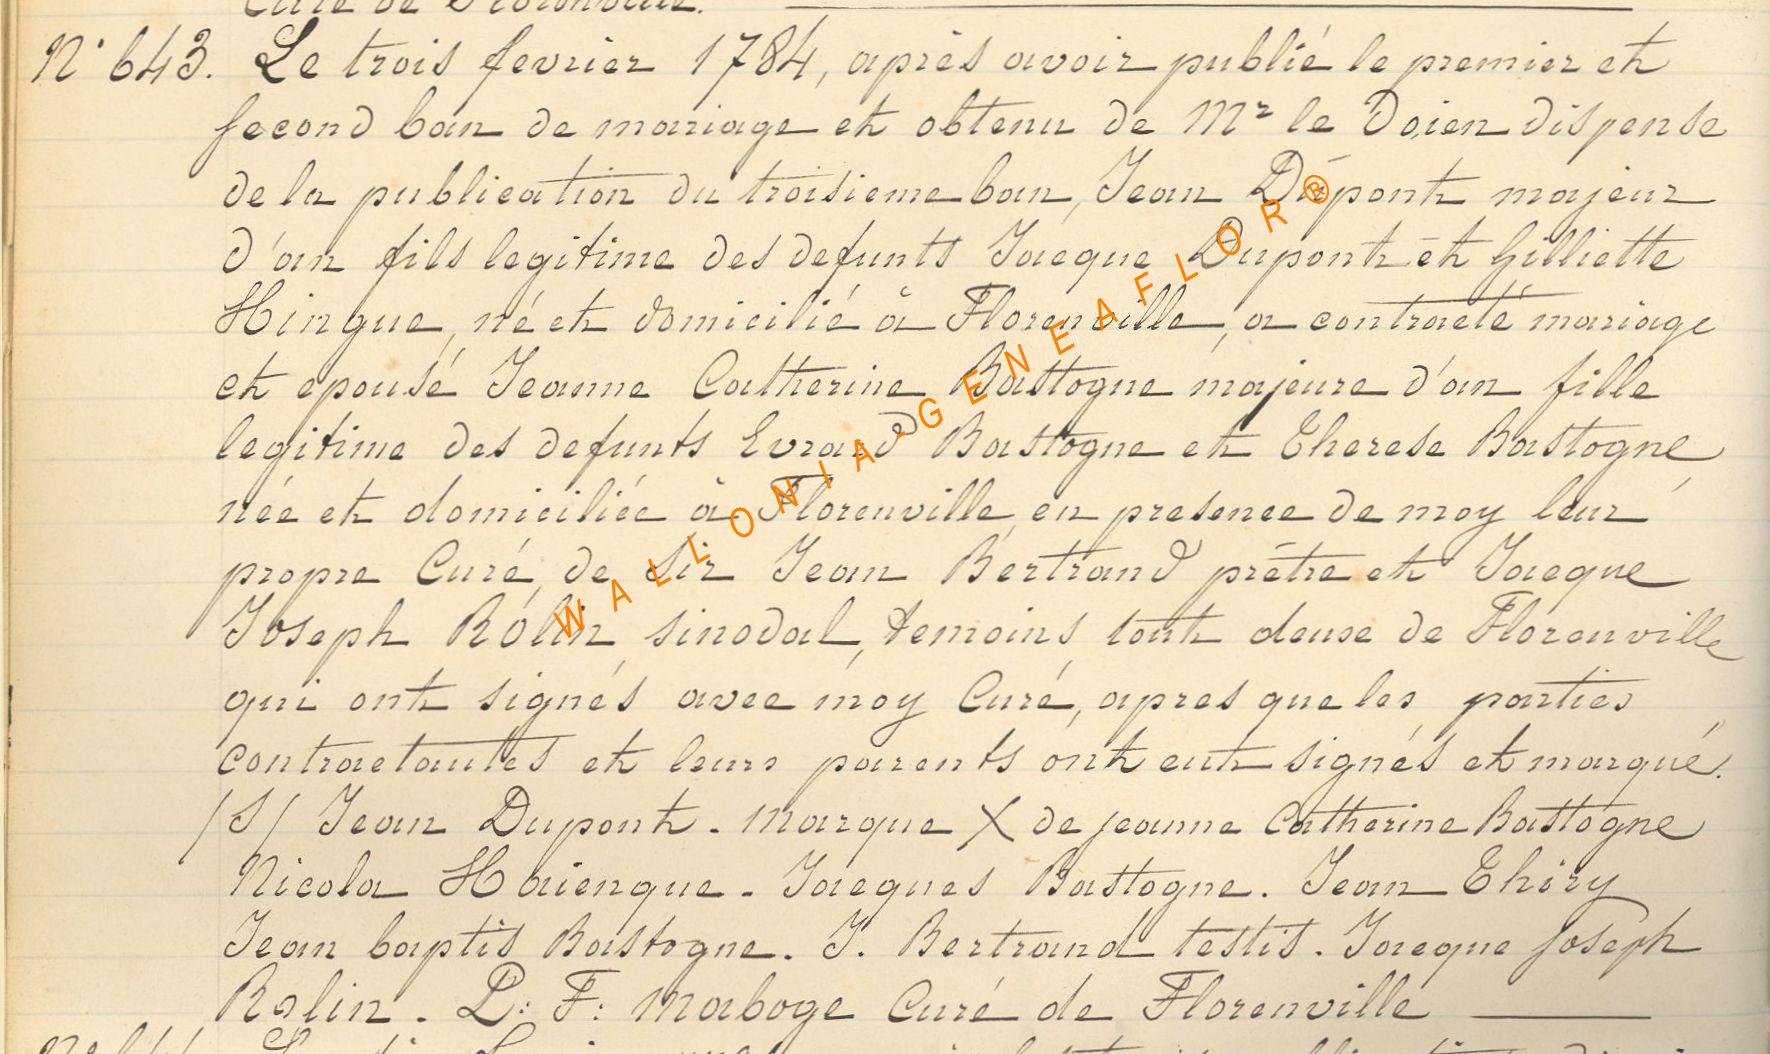 Curé de Florenville.
N° 643. Le trois fevrier 1784, après avoir publié le premier et
second ban de mariage et obtenu de Mr le Doien dispense
de la publication du troisieme ban, Jean Dupont majeur
d'an fils legitime des defunts Jacque Dupont et Gilliette
Hingue, né et domicilié à Florenville, a contracté mariage
et epousé Jeanne Catherine Bastogne majeure d'an fille
legitime des defunts Evrard Bastogne et Therese Bastogne,
née et domiciliée à Florenville, en presence de moy leur
propre Curé, de Sir Jean Bertrand prêtre et Jacque
Joseph Rolin, sinodal, temoins tout deuse de Florenville
qui ont signés avec moy Curé, apres que les parties
contractantes et leurs parents ont eut signés et marqué.
/S/ Jean Dupont. Marque X de jeanne Catherine Bastogne
Nicola Haiengue. Jacques Bastogne. Jean Thiry
Jean baptis Bastogne. J. Bertrand testis. Jacque Joseph
Rolin. P: F: Maboge Curé de Florenville
WALLONIA-GENEAFLOR®